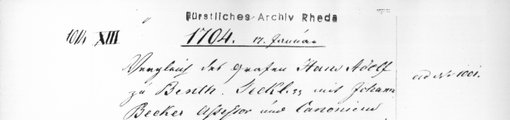 Fürstliches Archiv Rheda
XIII 1704. 17. Januar
Vergleich des Grafen Hans Adolf
zu Benth. Teckl. mit Johann
Becker Assessor und Canonicus